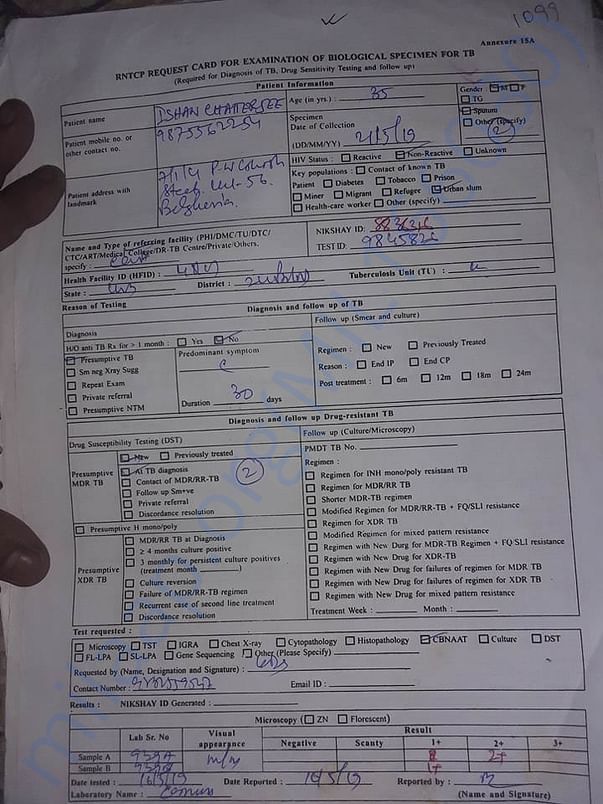 1099
Annexure 15A
RNTCP REQUEST CARD FOR EXAMINATION OF BIOLOGICAL SPECIMEN FOR TB
(Required for Diagnosis of TB, Drug Sensitivity Testing and follow up)
Patient Information
Patient name ISHAN CHATTERJEE Age (in yrs.) : 35 Gender : M F
TG
Patient mobile no. or other contact no. 9875562254
Specimen Sputum
Date of Collection Other (specify)
(DD/MM/YY) 2/5/19 2
HIV Status : Reactive Non-Reactive Unknown
Patient address with landmark
Key populations : Contact of known TB
Patient Diabetes Tobacco Prison
Miner Migrant Refugee Urban slum
Health-care worker Other (specify)
Name and Type of referring facility (PHI/DMC/TU/DTC/
CTC/ART/Medical College/DR-TB Centre/Private/Others,
specify :
NIKSHAY ID:
TEST ID:
Health Facility ID (HFID) :
State : District : Tuberculosis Unit (TU) :
Reason of Testing
Diagnosis and follow up of TB
Diagnosis
Follow up (Smear and culture)
H/O anti TB Rx for > 1 month : Yes No
Presumptive TB
Sm neg Xray Sugg
Repeat Exam
Private referral
Presumptive NTM
Predominant symptom
Duration 30 days
Regimen : New Previously Treated
Reason : End IP End CP
Post treatment : 6m 12m 18m 24m
Diagnosis and follow up Drug-resistant TB
Drug Susceptibility Testing (DST)
Presumptive MDR TB
New Previously treated
At TB diagnosis
Contact of MDR/RR-TB 2
Follow up Sm+ve
Private referral
Discordance resolution
Presumptive H mono/poly
Presumptive XDR TB
MDR/RR TB at Diagnosis
≥ 4 months culture positive
3 monthly for persistent culture positives
(treatment month )
Culture reversion
Failure of MDR/RR-TB regimen
Recurrent case of second line treatment
Discordance resolution
Follow up (Culture/Microscopy)
PMDT TB No.
Regimen :
Regimen for INH mono/poly resistant TB
Regimen for MDR/RR TB
Shorter MDR-TB regimen
Modified Regimen for MDR/RR-TB + FQ/SLI resistance
Regimen for XDR TB
Modified Regimen for mixed pattern resistance
Regimen with New Durg for MDR-TB Regimen + FQ/SLI resistance
Regimen with New Drug for XDR-TB
Regimen with New Drug for failures of regimen for MDR TB
Regimen with New Drug for failures of regimen for XDR TB
Regimen with New Drug for mixed pattern resistance
Treatment Week : Month :
Test requested :
Microscopy TST IGRA Chest X-ray Cytopathology Histopathology CBNAAT Culture DST
FL-LPA SL-LPA Gene Sequencing Other (Please Specify)
Requested by (Name, Designation and Signature) :
Contact Number : Email ID :
Results : NIKSHAY ID Generated :
Microscopy ( ZN Florescent)
Lab Sr. No Visual appearance Result
Negative Scanty 1+ 2+ 3+
Sample A 939A m/p 2+
Sample B 1+
Date tested : 16/5/19 Date Reported : 16/5/19 Reported by :
Laboratory Name : (Name and Signature)